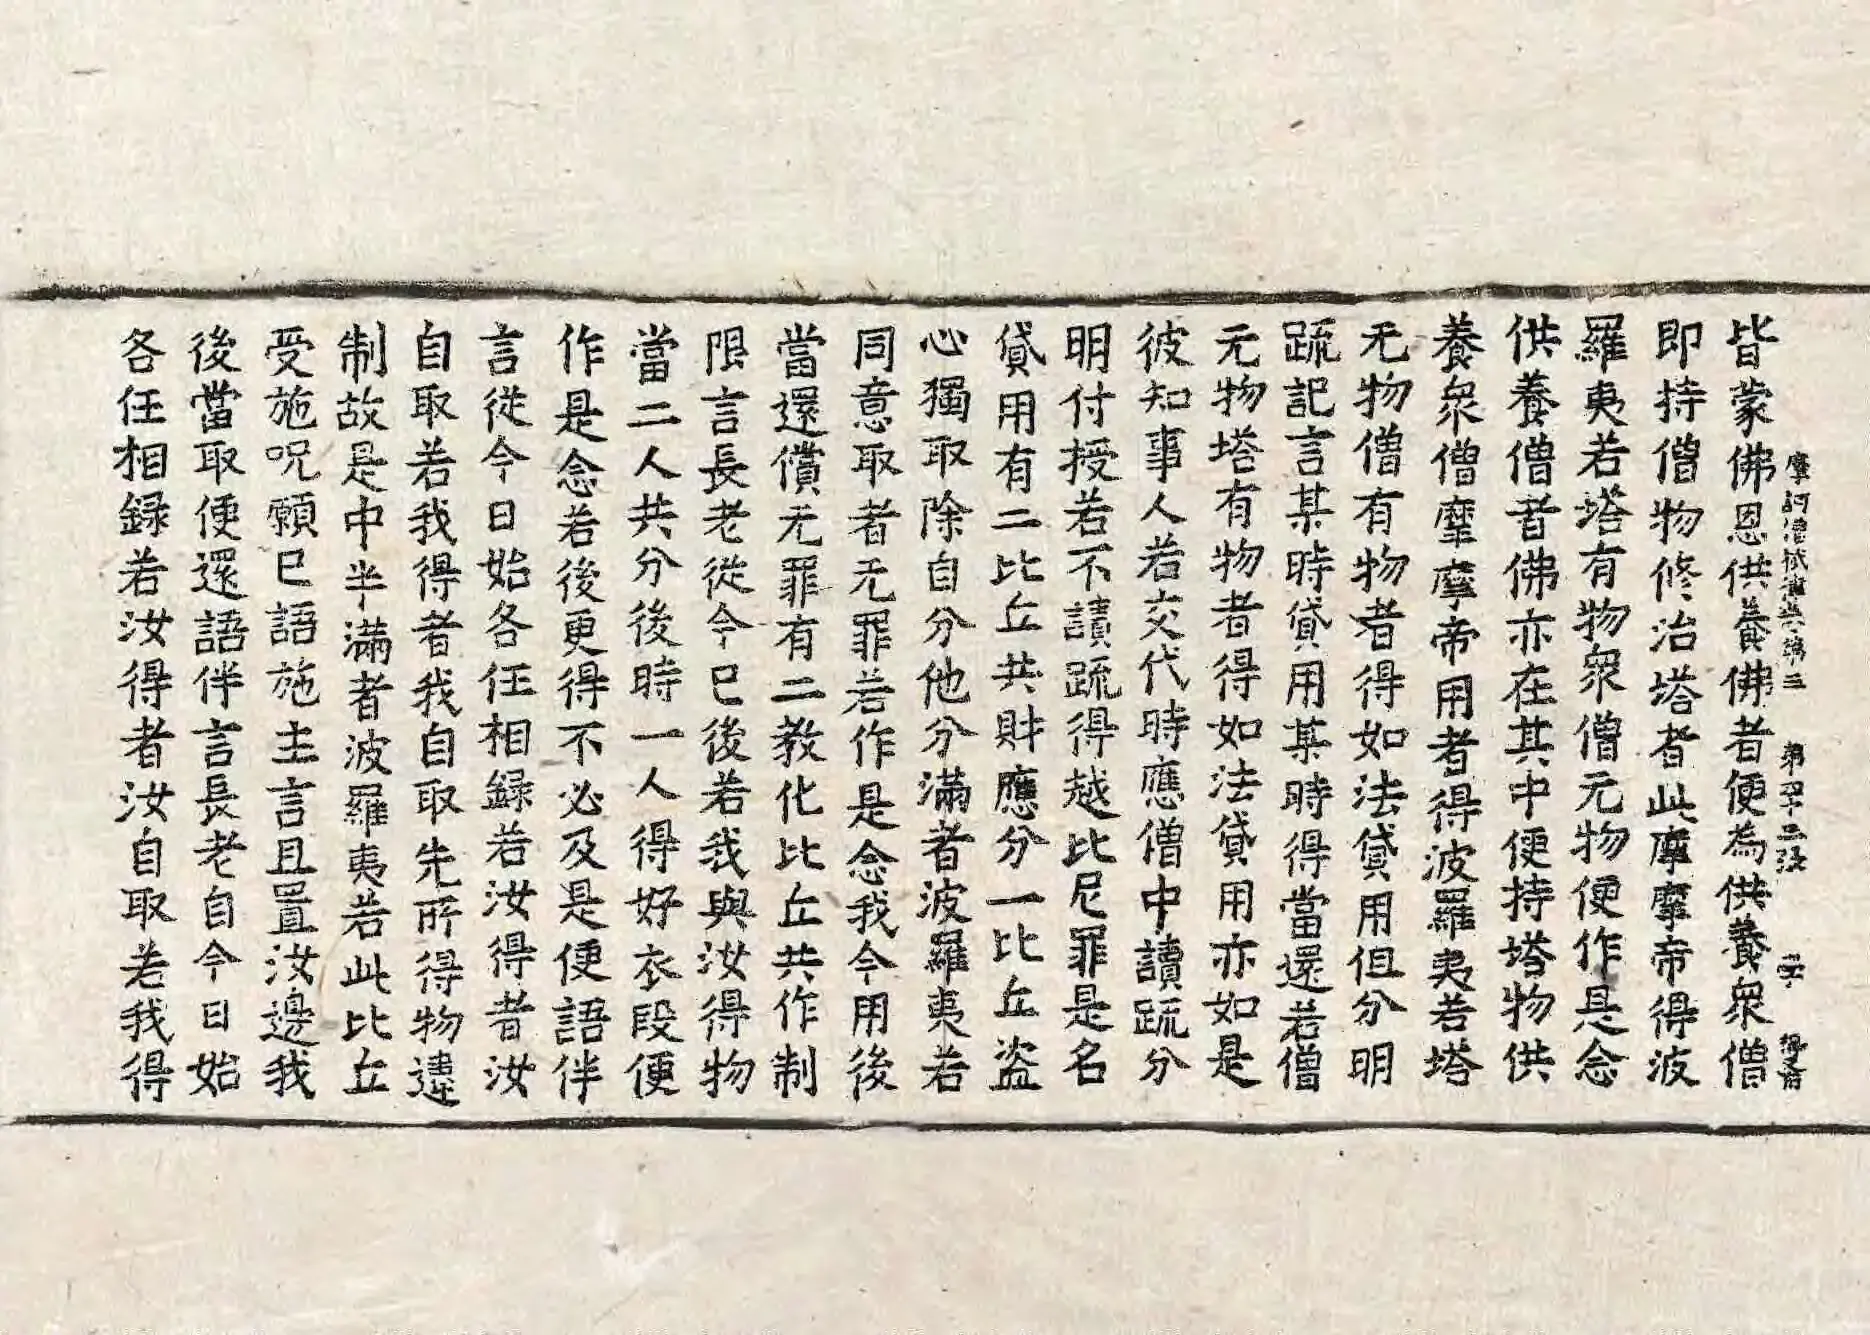 摩訶僧祇律卷第三 第四十二張
皆蒙佛恩供養佛者便為供養衆僧
即持僧物修治塔者此摩摩帝得波
羅夷若塔有物衆僧无物便作是念
供養僧者佛亦在其中便持塔物供
養衆僧摩摩帝用者得波羅夷若塔
无物僧有物者得如法貸用但分明
䟽記言某時貸用某時得當還若僧
无物塔有物者得如法貸用亦如是
彼知事人若交代時應僧中讀䟽分
明付授若不讀䟽得越比尼罪是名
貸用有二比丘共財應分一比丘盜
心獨取除自分他分滿者波羅夷若
同意取者无罪若作是念我今用後
當還償无罪有二教化比丘共作制
限言長老從今已後若我與汝得物
當二人共分後時一人得好衣段便
作是念若後更得不必及是便語伴
言從今日始各任相録若汝得者汝
自取若我得者我自取先所得物違
制故是中半滿者波羅夷若此比丘
受施呪願已語施主言且置汝邊我
後當取便還語伴言長老自今日始
各任相録若汝得者汝自取若我得